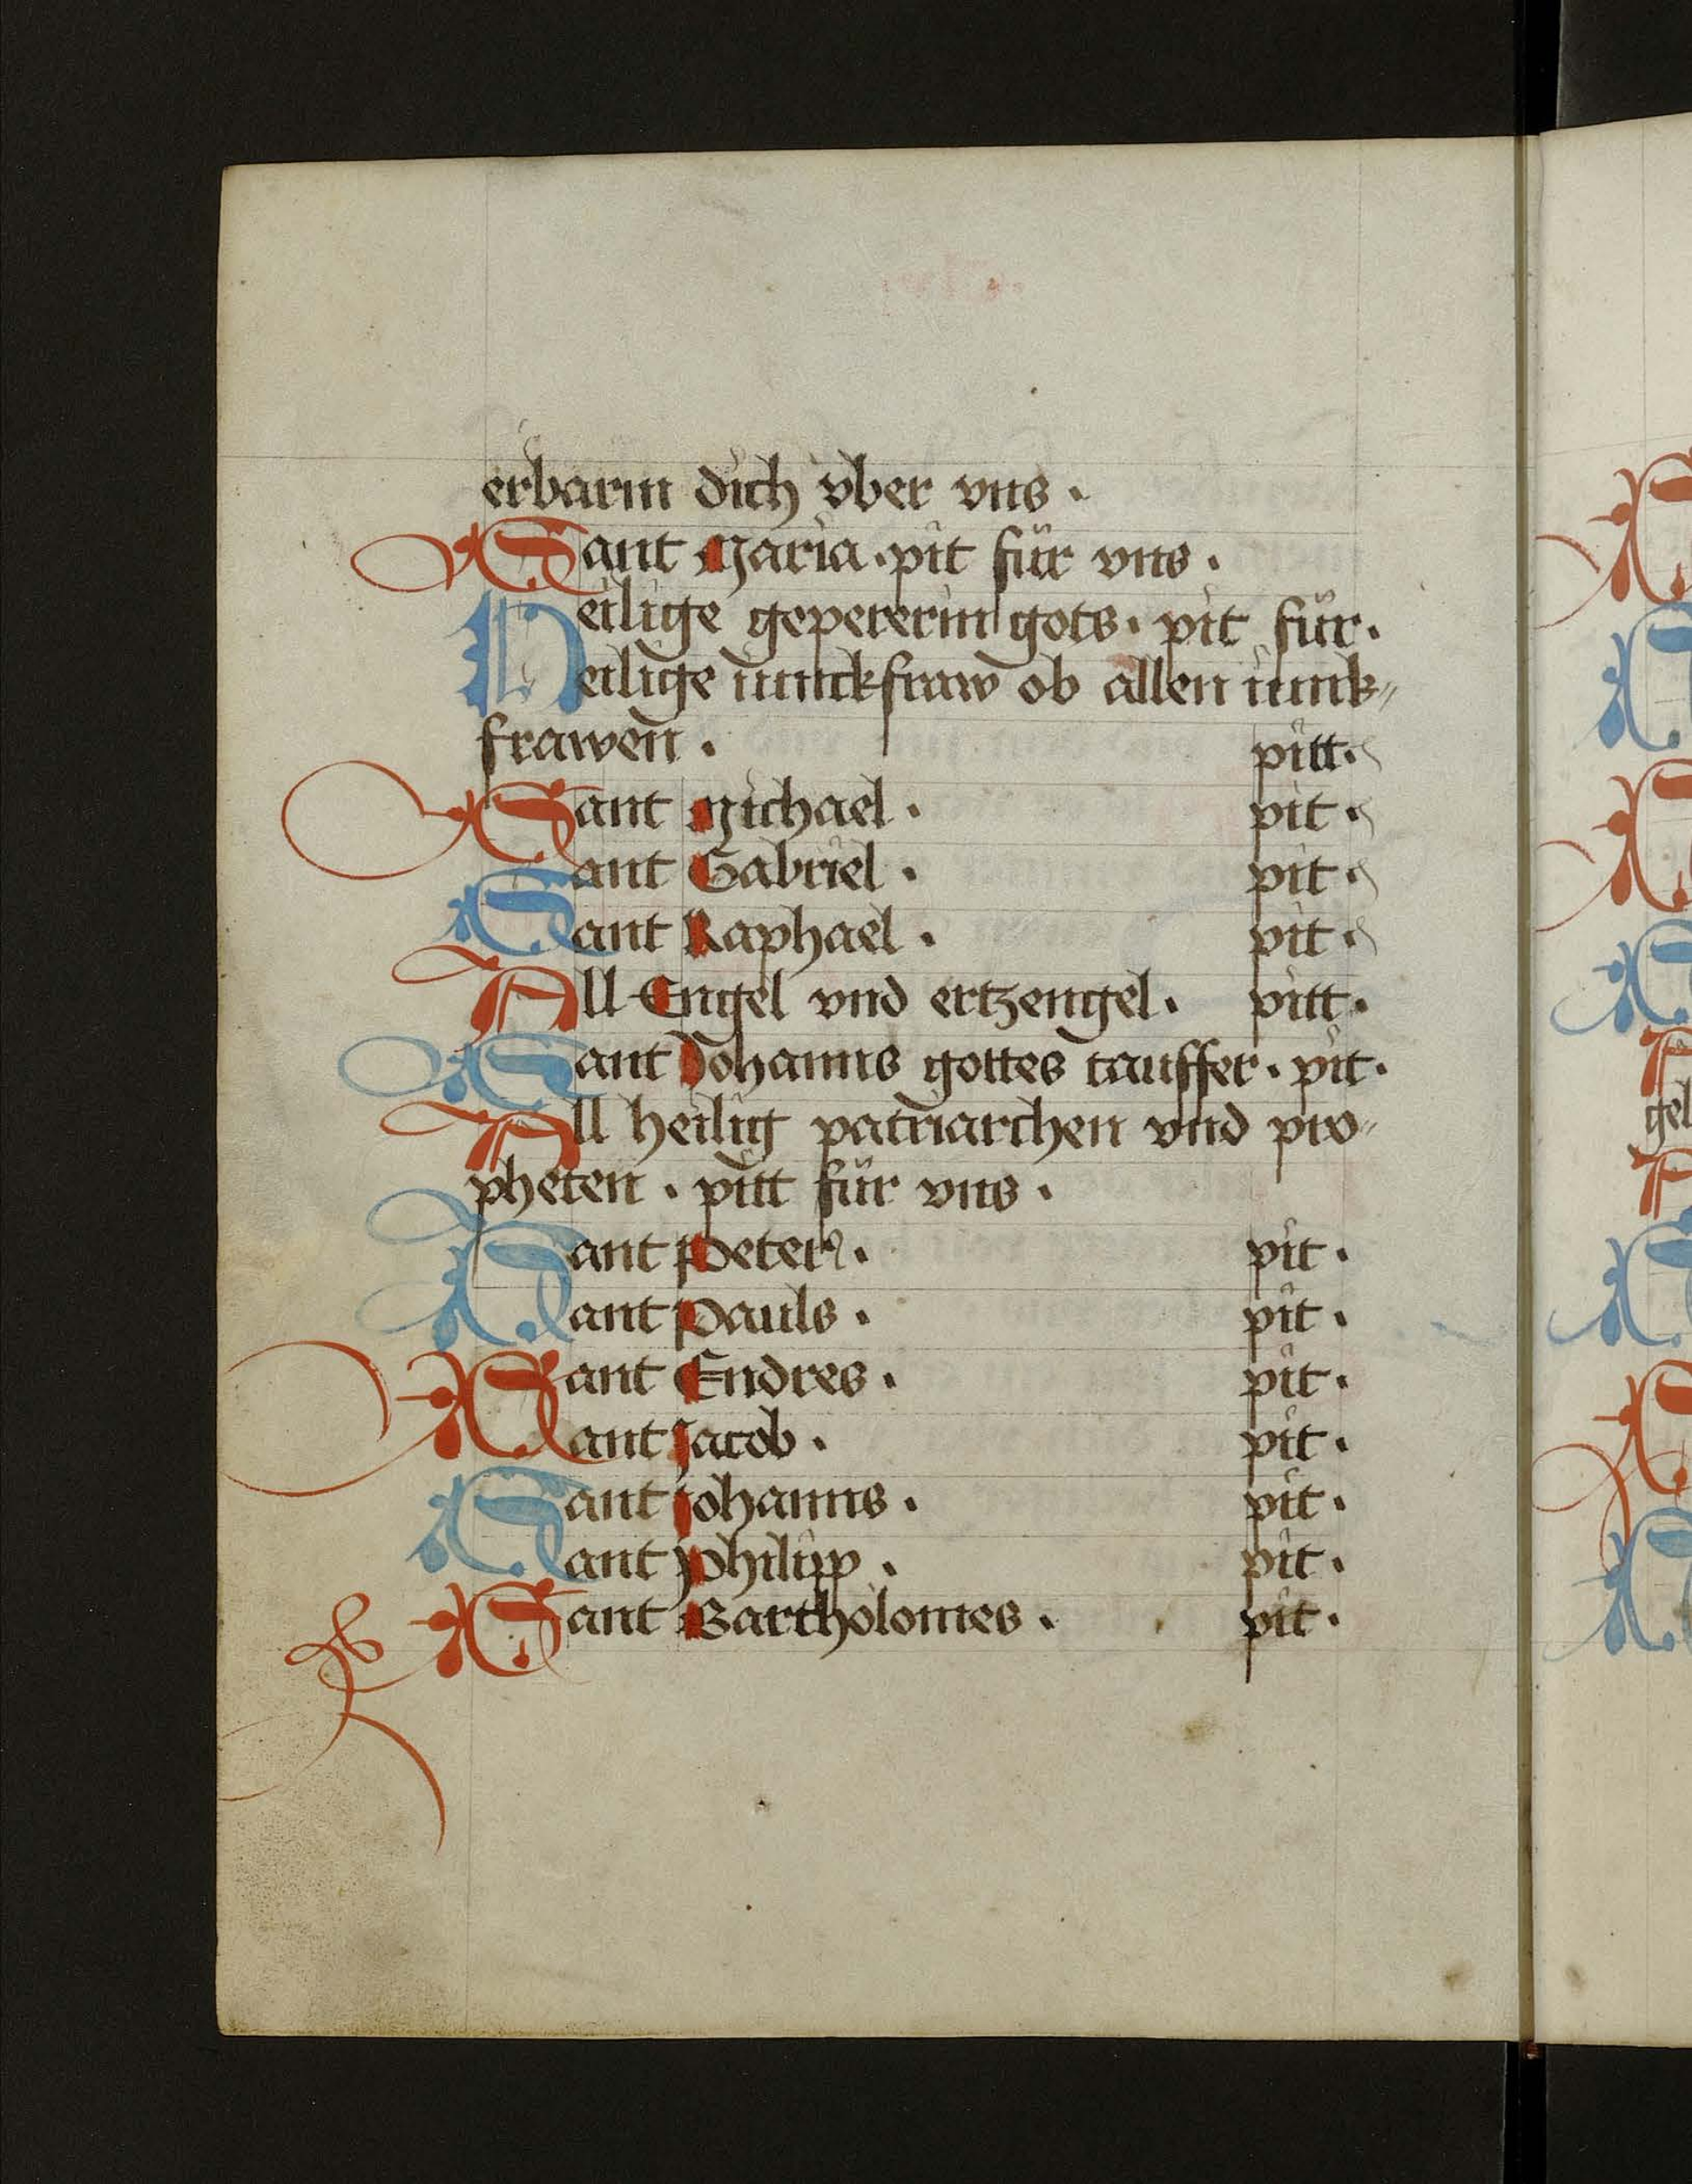 erbarm dich vber vns ·
Sant Maria · pit für vns ·
Heilige gepererin gots · pit für ·
Heilige iunckfraw ob allen iunk„
frawen · pitt ·
Sant Michael · pit ·
Sant Gabriel · pit ·
Sant Raphael · pit ·
All Engel vnd ertzengel · pitt ·
Sant Johanns gottes tauffer · pit ·
All heilig patriarchen vnd pro„
pheten · pitt für vns ·
Sant Peter · pit ·
Sant Pauls · pit ·
Sant Endres · pit ·
Sant Jacob · pit ·
Sant Johanns · pit ·
Sant Philipp · pit ·
Sant Bartholomes · pit ·
gel